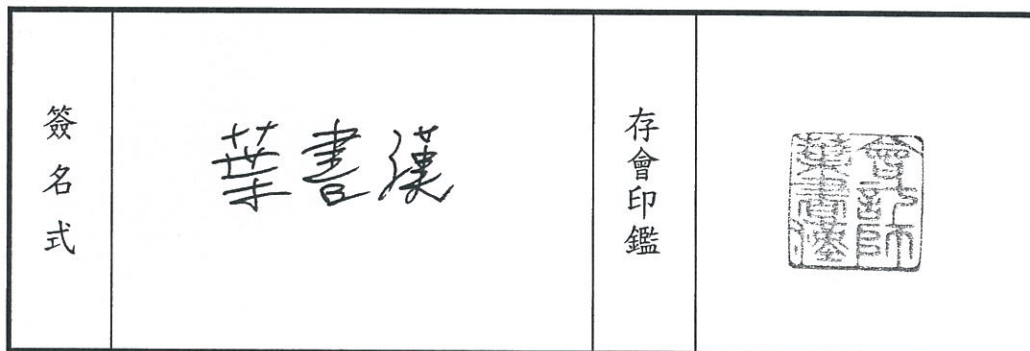 簽名式
葉書漢
存會印鑑
會計師
葉書漢